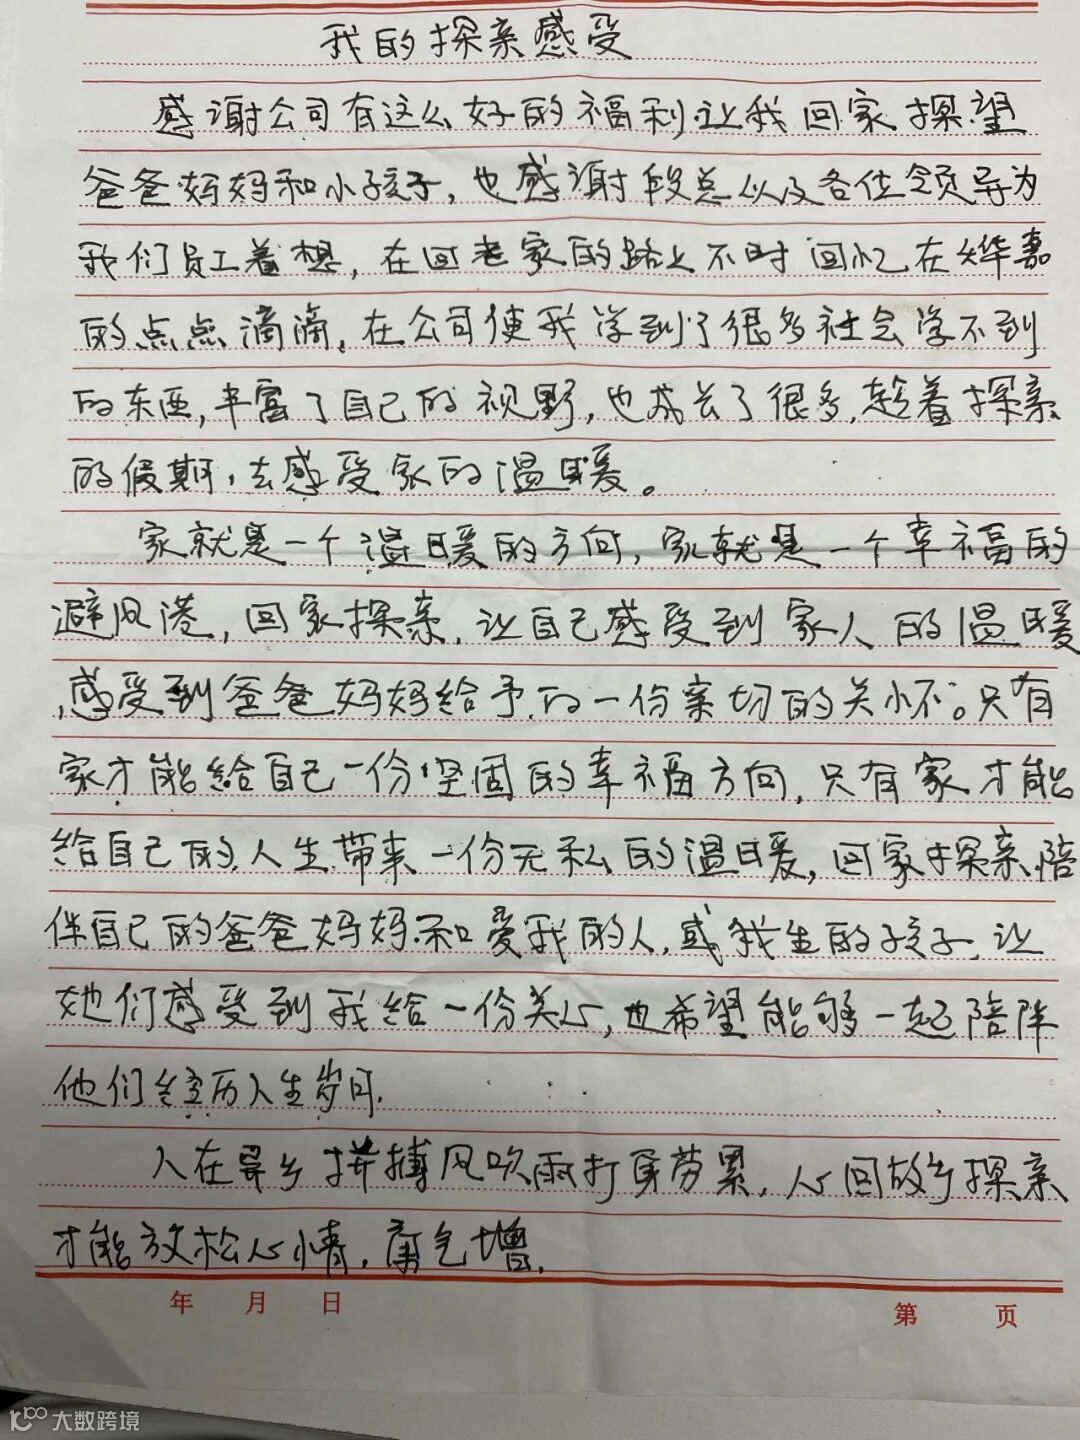 我的探亲感受
感谢公司有这么好的福利,让我回家探望
爸爸妈妈和小孩子,也感谢段总以及各位领导为
我们员工着想,在回老家的路上不时回忆在烨嘉
的点点滴滴,在公司使我学到了很多社会学不到
的东西,丰富了自己的视野,也成长了很多,趁着探亲
的假期,去感受家的温暖。
家就是一个温暖的方向,家就是一个幸福的
避风港,回家探亲,让自己感受到家人的温暖
,感受到爸爸妈妈给予的一份亲切的关怀。只有
家才能给自己一份坚固的幸福方向,只有家才能
给自己的人生带来一份无私的温暖,回家探亲陪
伴自己的爸爸妈妈和爱我的人,或我生的孩子,让
她们感受到我给一份关心,也希望能够一起陪伴
他们经历人生岁月.
人在异乡拼搏风吹雨打身劳累,心回故乡探亲
才能放松心情,勇气增.
年 月 日
第 页
大数跨境